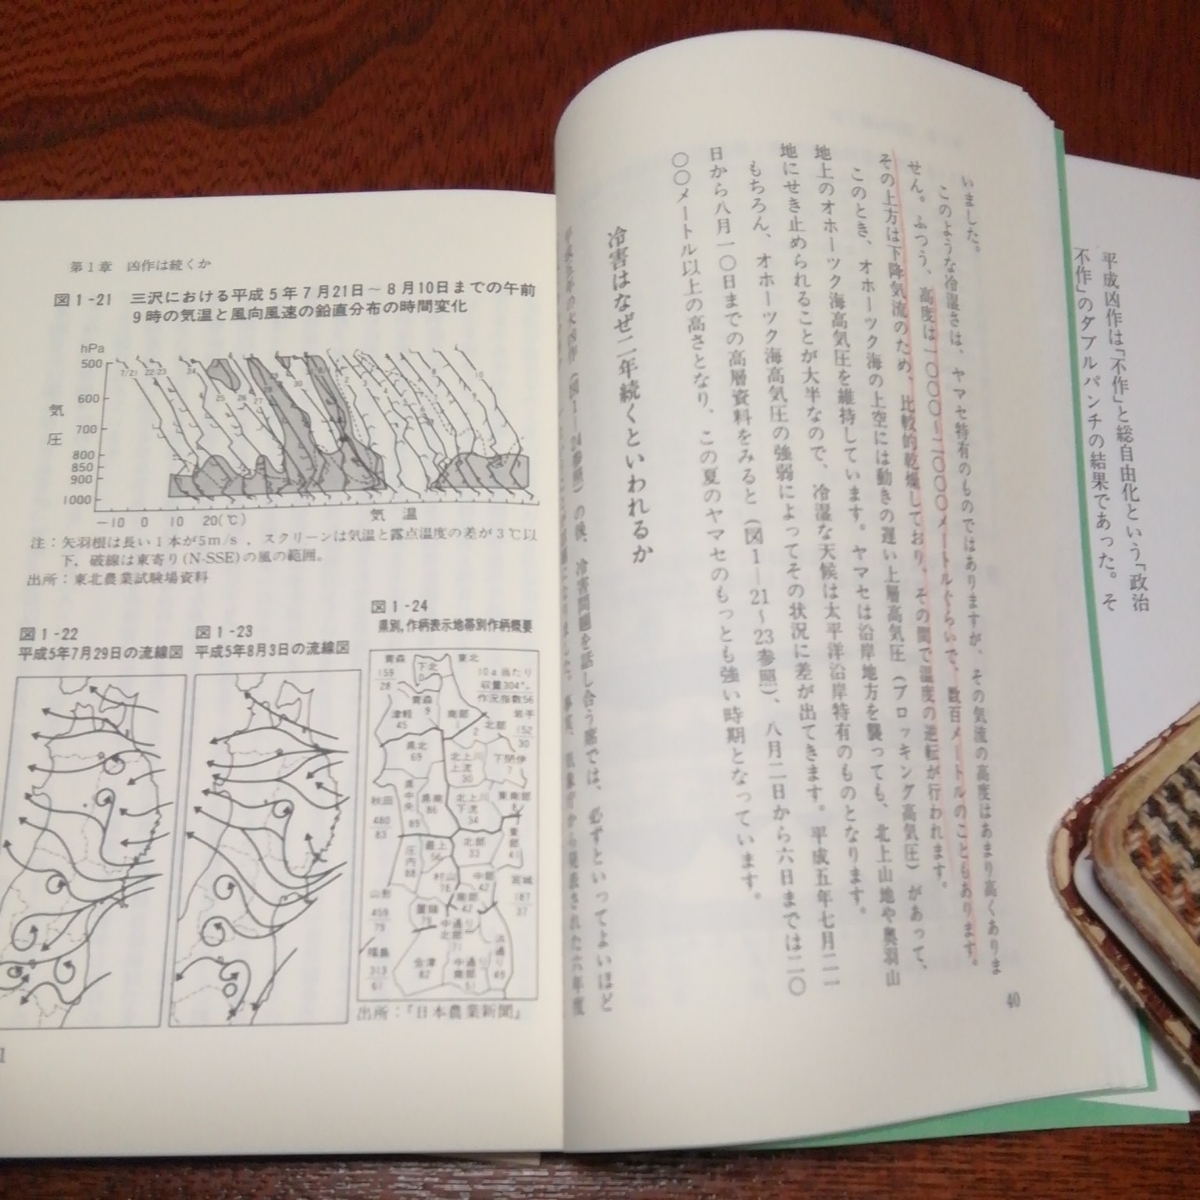 平成凶作は「不作」と総自由化という「政治
不作」のダブルパンチの結果であった。そ
いました。
このような冷湿さは、ヤマセ特有のものではありますが、その気流の高度はあまり高くありま
せん。ふつう、高度は一〇〇〇〜二〇〇〇メートルぐらいで、数百メートルのこともあります。
その上方は下降気流のため、比較的乾燥しており、その間で温度の逆転が行われます。
このとき、オホーツク海の上空には動きの遅い上層高気圧（ブロッキング高気圧）があって、
地上のオホーツク海高気圧を維持しています。ヤマセは沿岸地方を襲っても、北上山地や奥羽山
地にせき止められることが大半なので、冷湿な天候は太平洋沿岸特有のものとなります。
もちろん、オホーツク海高気圧の強弱によってその状況に差が出てきます。平成五年七月二一
日から八月一〇日までの高層資料をみると（図1―21〜23参照）、八月二日から六日までは二〇
〇〇メートル以上の高さとなり、この夏のヤマセのもっとも強い時期となっています。
冷害はなぜ二年続くといわれるか
平成五年の大凶作（図1―24参照）の後、冷害問題を話し合う席では、必ずといってよいほど
40
第1章 凶作は続くか
図1-21 三沢における平成5年7月21日〜8月10日までの午前
9時の気温と風向風速の鉛直分布の時間変化
hPa
500
600
700
800
850
900
1000
気圧
-10 0 10 20(℃) 気温
注：矢羽根は長い1本が5m/s，スクリーンは気温と露点温度の差が3℃以
下，破線は東寄り(N-SSE)の風の範囲。
出所：東北農業試験場資料
図1-22
平成5年7月29日の流線図
図1-23
平成5年8月3日の流線図
図1-24
県別,作柄表示地帯別作柄概要
東北
10a当たり
収量304㎏
作況指数56
青森
159
28
下北
0
青森
9
津軽
45
南部
2
岩手
152
30
北部
県北
69
北上川
上流
30
下閉伊
7
秋田
480
83
県中央
89
県南
86
北上川
下流
34
東南部
東部
庄内
88
最上
56
北部
33
村山
76
中部
42
宮城
187
37
山形
459
79
置賜
79
南部
42
中通り
北部
71
福島
313
61
会津
82
中通り
中南部
51
浜通り
49
出所：『日本農業新聞』